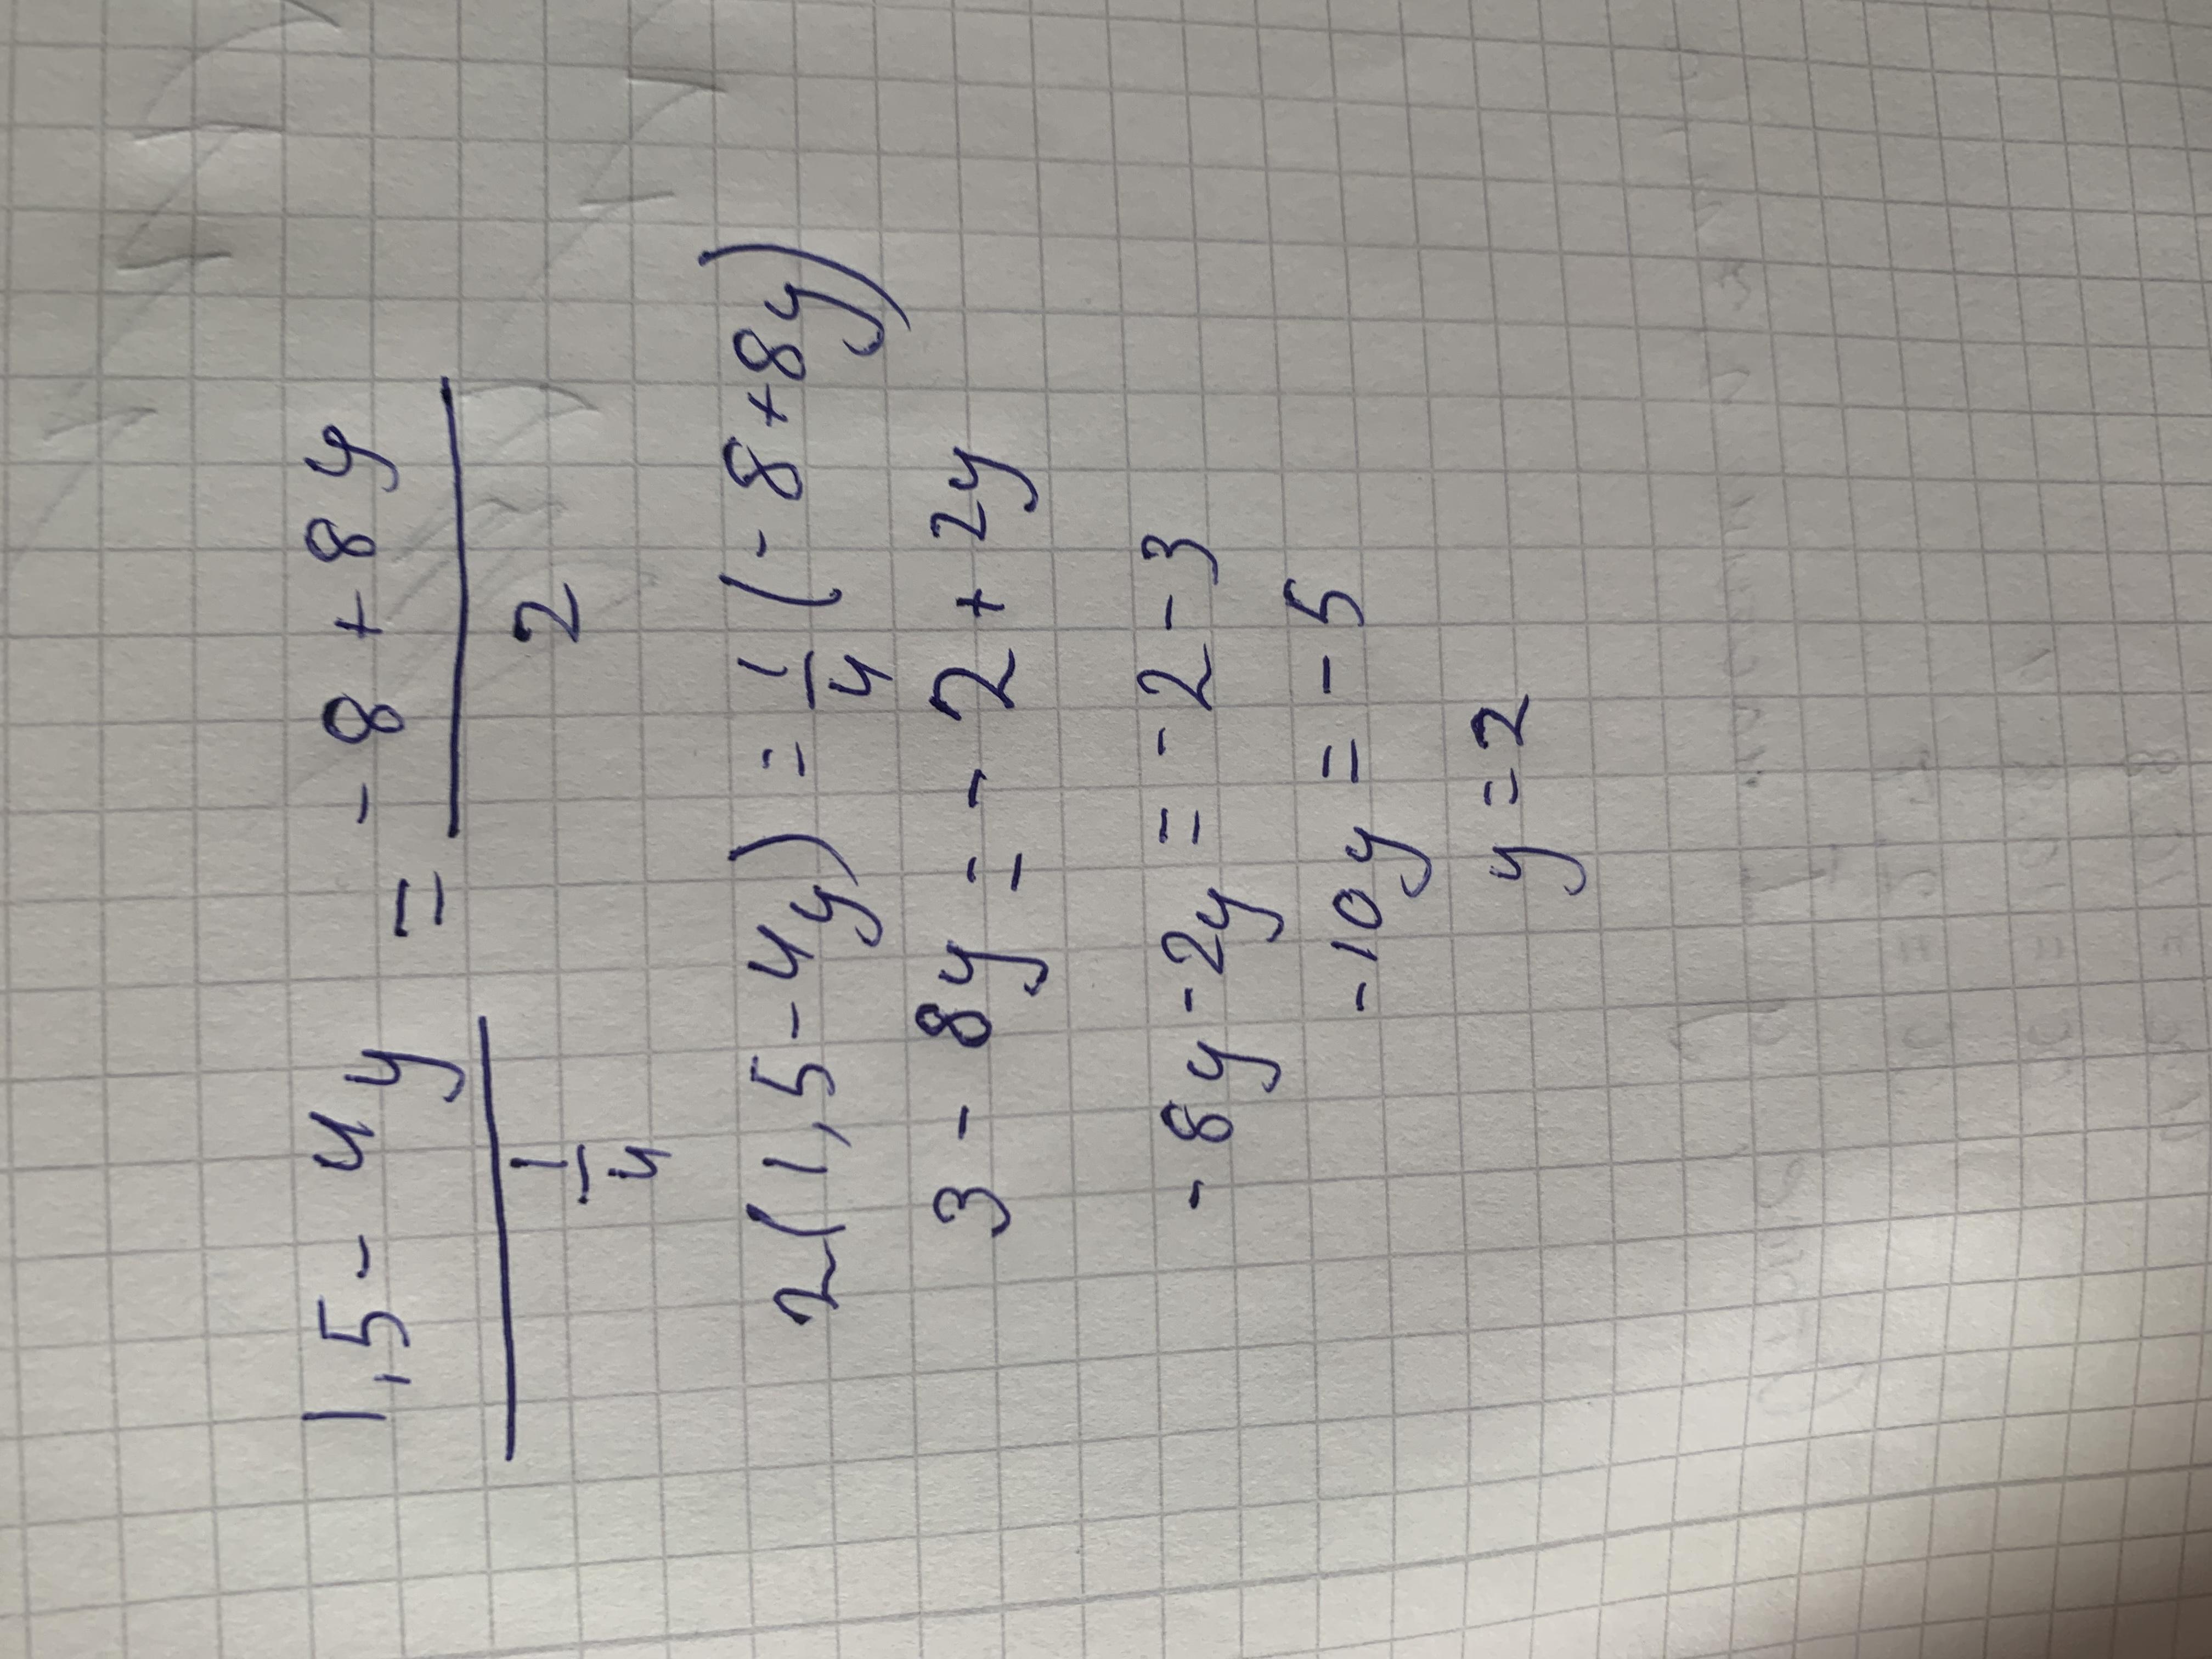 (1,5 - 4y)/(1/4) = (-8 + 8y)/2
2(1,5 - 4y) = 1/4 (-8 + 8y)
3 - 8y = -2 + 2y
-8y - 2y = -2 - 3
-10y = -5
y = 2